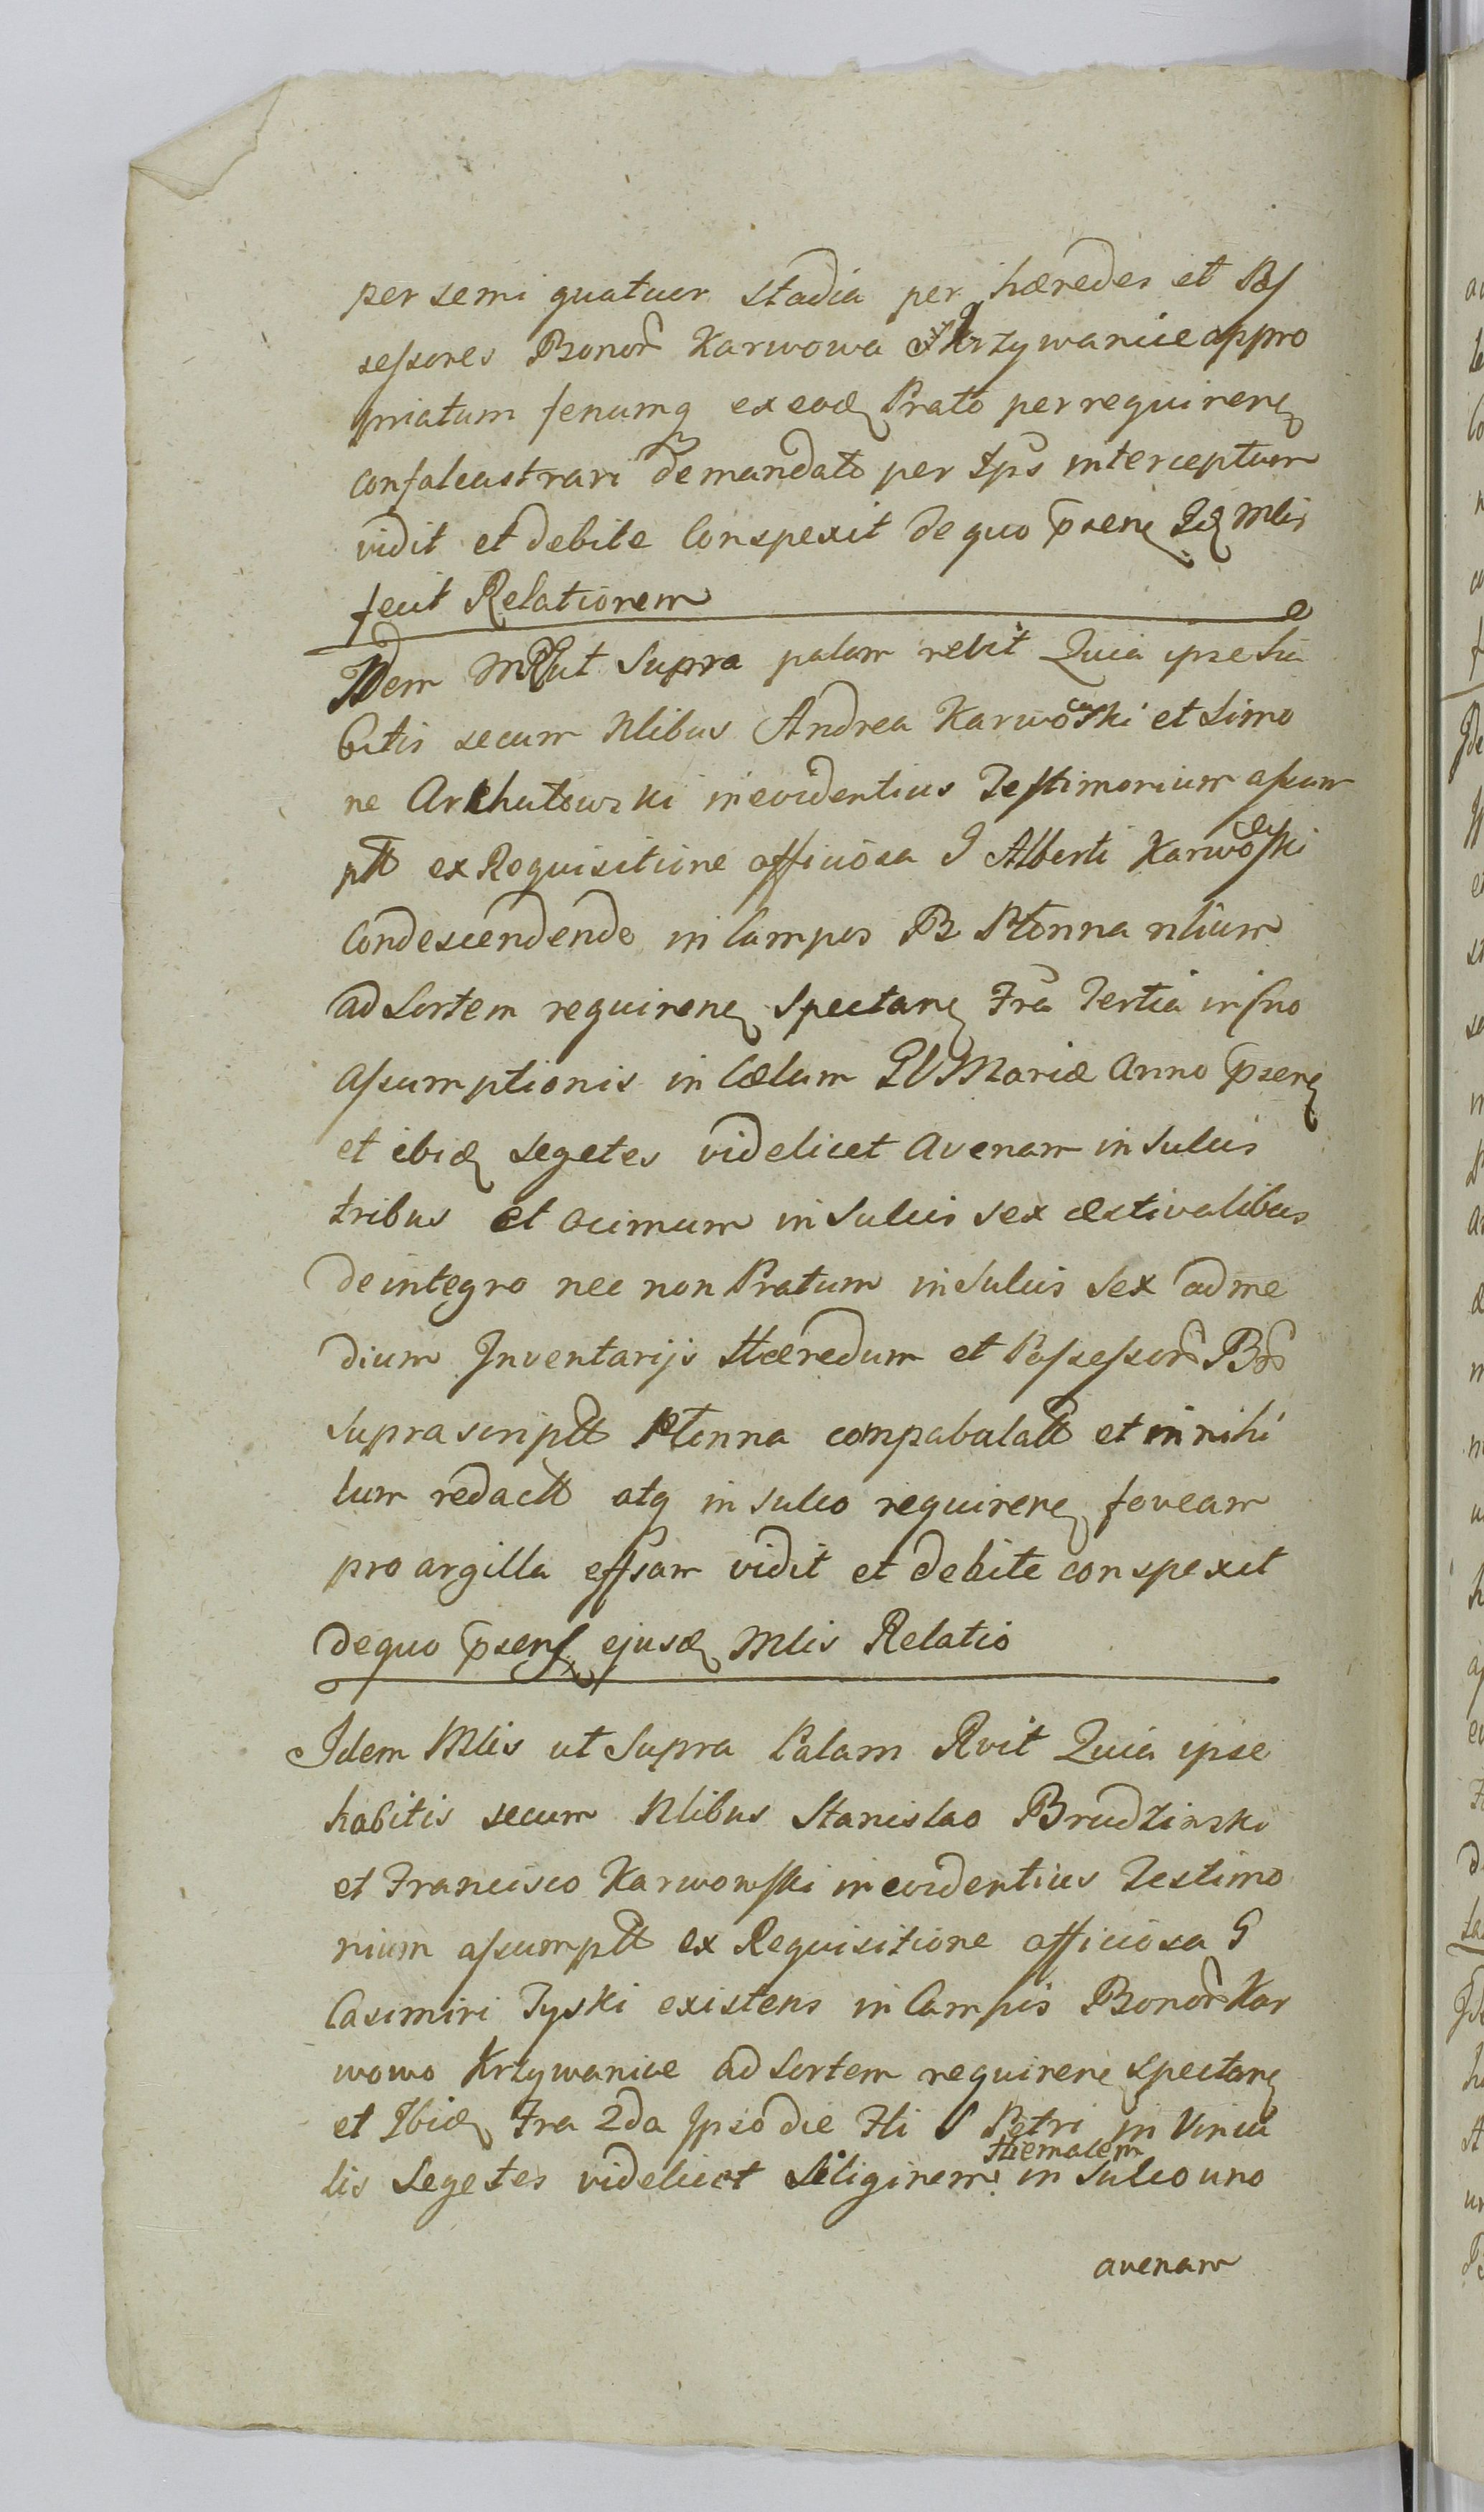 per semi quatuor stadia per hæredes et Pos
sessores Bonor Karwowa Krzywanice appro
priatum fenumq ex eod Prato per requiren
confalcastrari demandato per Ips interceptum
vidit et debite Conspexit de quo psens Id Mlis
fecit Relationem
Idem M ut Supra palam rebit Quia ipse ha
bitis secum Nlibus Andrea Karwowski et Simo
ne Archutowski in evidentius Testimonium assum
ptt ex Requisitione officiosa G Alberti Karwowski
Condescendendo in Campos B Ptonna nlium
ad Sortem requirenq Spectanq Fra Tertia in fno
Assumptionis in Cœlum BV Mariæ Anno psenq
et ibid segetes videlicet Avenam in sulcis
tribus et ocimum in Sulcis sex æstivalibus
de integro nec non Pratum in Sulcis Sex ad me
dium Inventarijs Hæredum et Possessor Br
supra scriptt Ptonna compabulatt et in nihi
lum redactt atq in sulco requirenq foveam
pro argilla effsam vidit et debite conspexit
de quo psens ejusd Mlis Relatio
Idem Mlis ut Supra Palam Rvit Quia ipse
habitis secum Nlibus Stanislao Brudzinski
et Francisco Karwowski in evidentius Testimo
nium assumptt ex Requisitione officiosa G
Casimiri Tyski existens in Campis Bonor Kar
wowo Krzywanice ad Sortem requirenq Spectanq
et Ibid Fra 2da Ipso die Fti S Petri in Vincu
lis Segetes videlicet Siliginem Hiemalem in Sulco uno
avenam